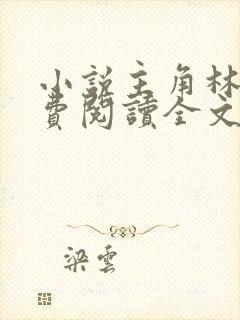 小說主角林
費閱讀全文
梁雲